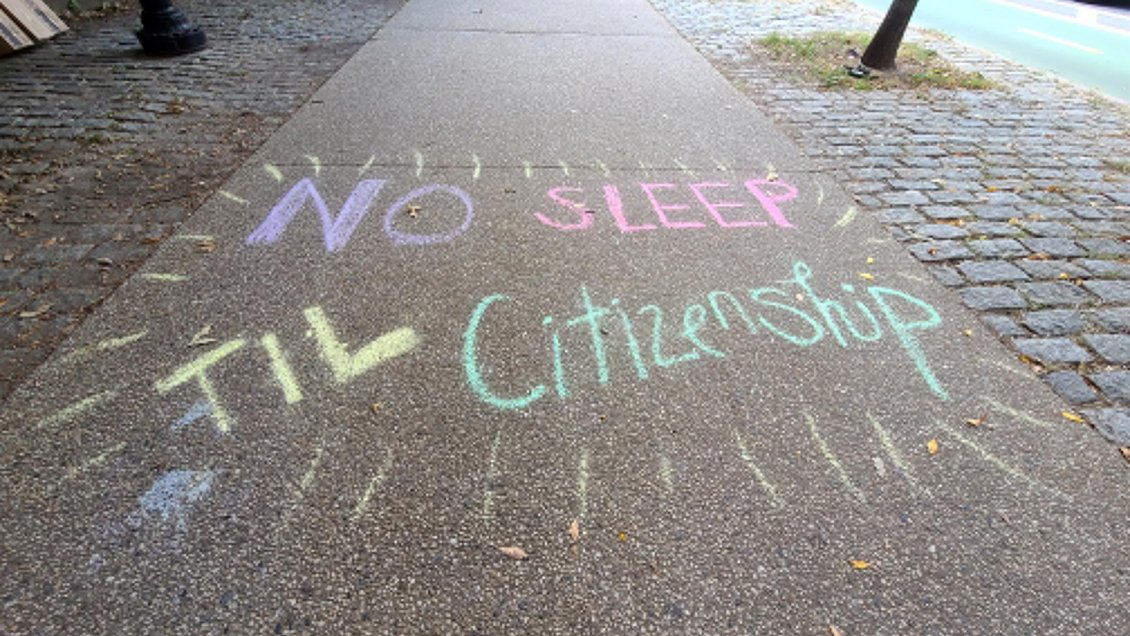 NO SLEEP
TIL Citizenship